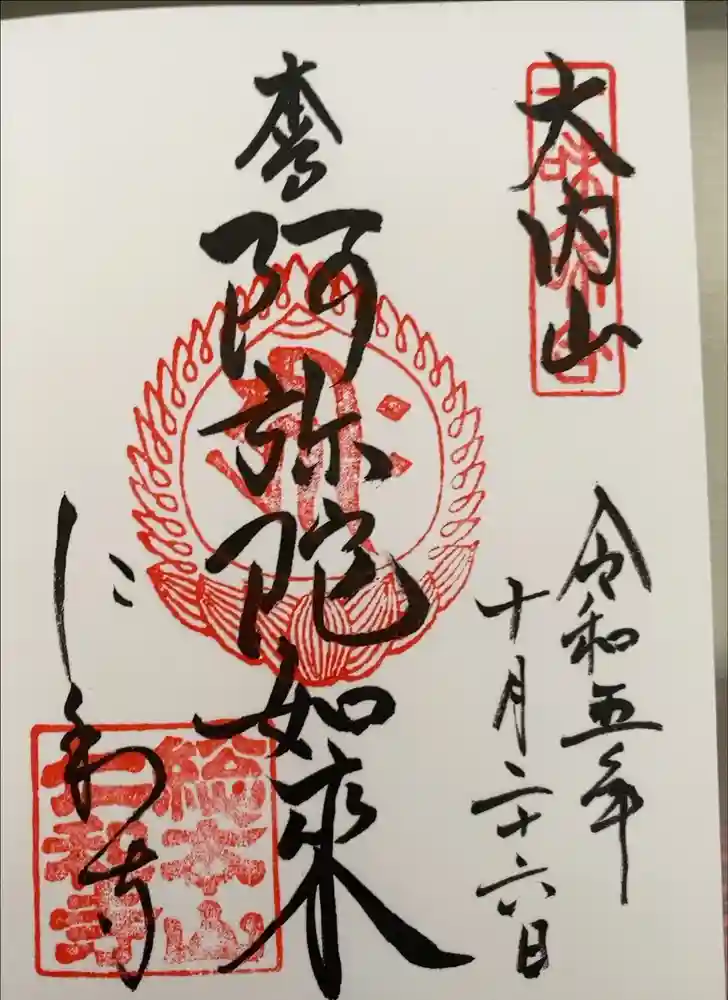 大内山
令和五年
十月二十六日
本尊
阿弥陀如来
仁和寺
総本山
仁和寺